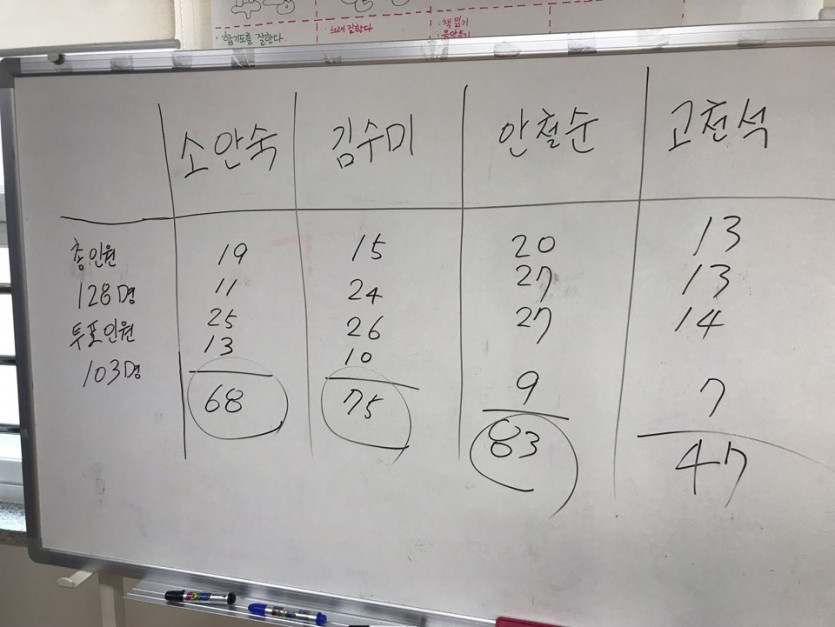 · 합기도를 잘한다.
· 노래 잘한다
· 책 읽기
소안숙 김수미 안철순 고천석
총인원 19 15 20 13
128명 11 24 27 13
투표인원 25 26 27 14
103명 13 10 9 7
68 75 83 47